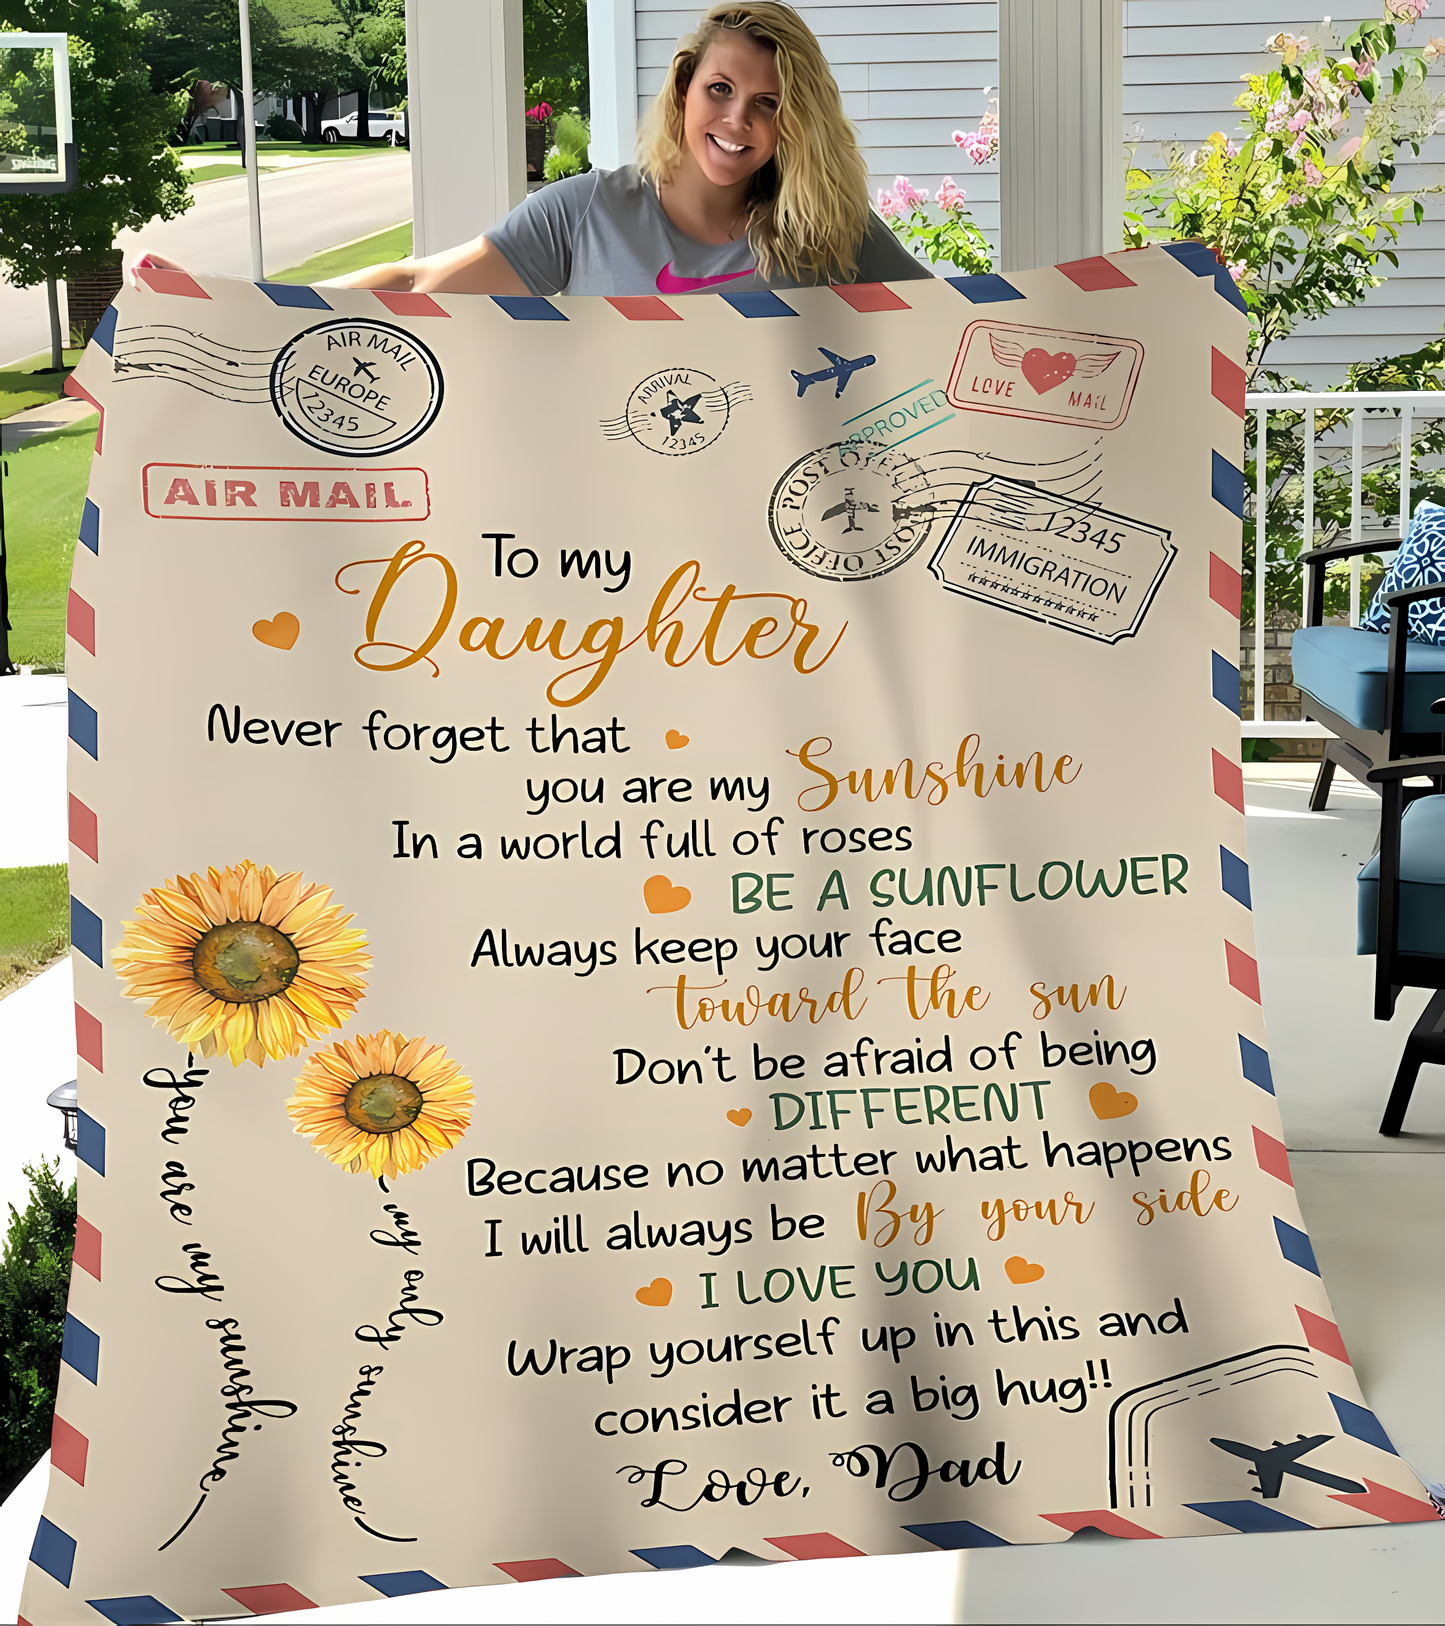 SPALDING
AIR MAIL
EUROPE
12345
ARRIVAL
12345
APPROVED
LOVE MAIL
POST OFFICE POST OFFICE
12345
IMMIGRATION
AIR MAIL
To my
Daughter
Never forget that
you are my Sunshine
In a world full of roses
BE A SUNFLOWER
Always keep your face
toward the sun
Don't be afraid of being
DIFFERENT
Because no matter what happens
I will always be By your side
I LOVE YOU
Wrap yourself up in this and
consider it a big hug!!
Love, Dad
you are my sunshine
my only sunshine